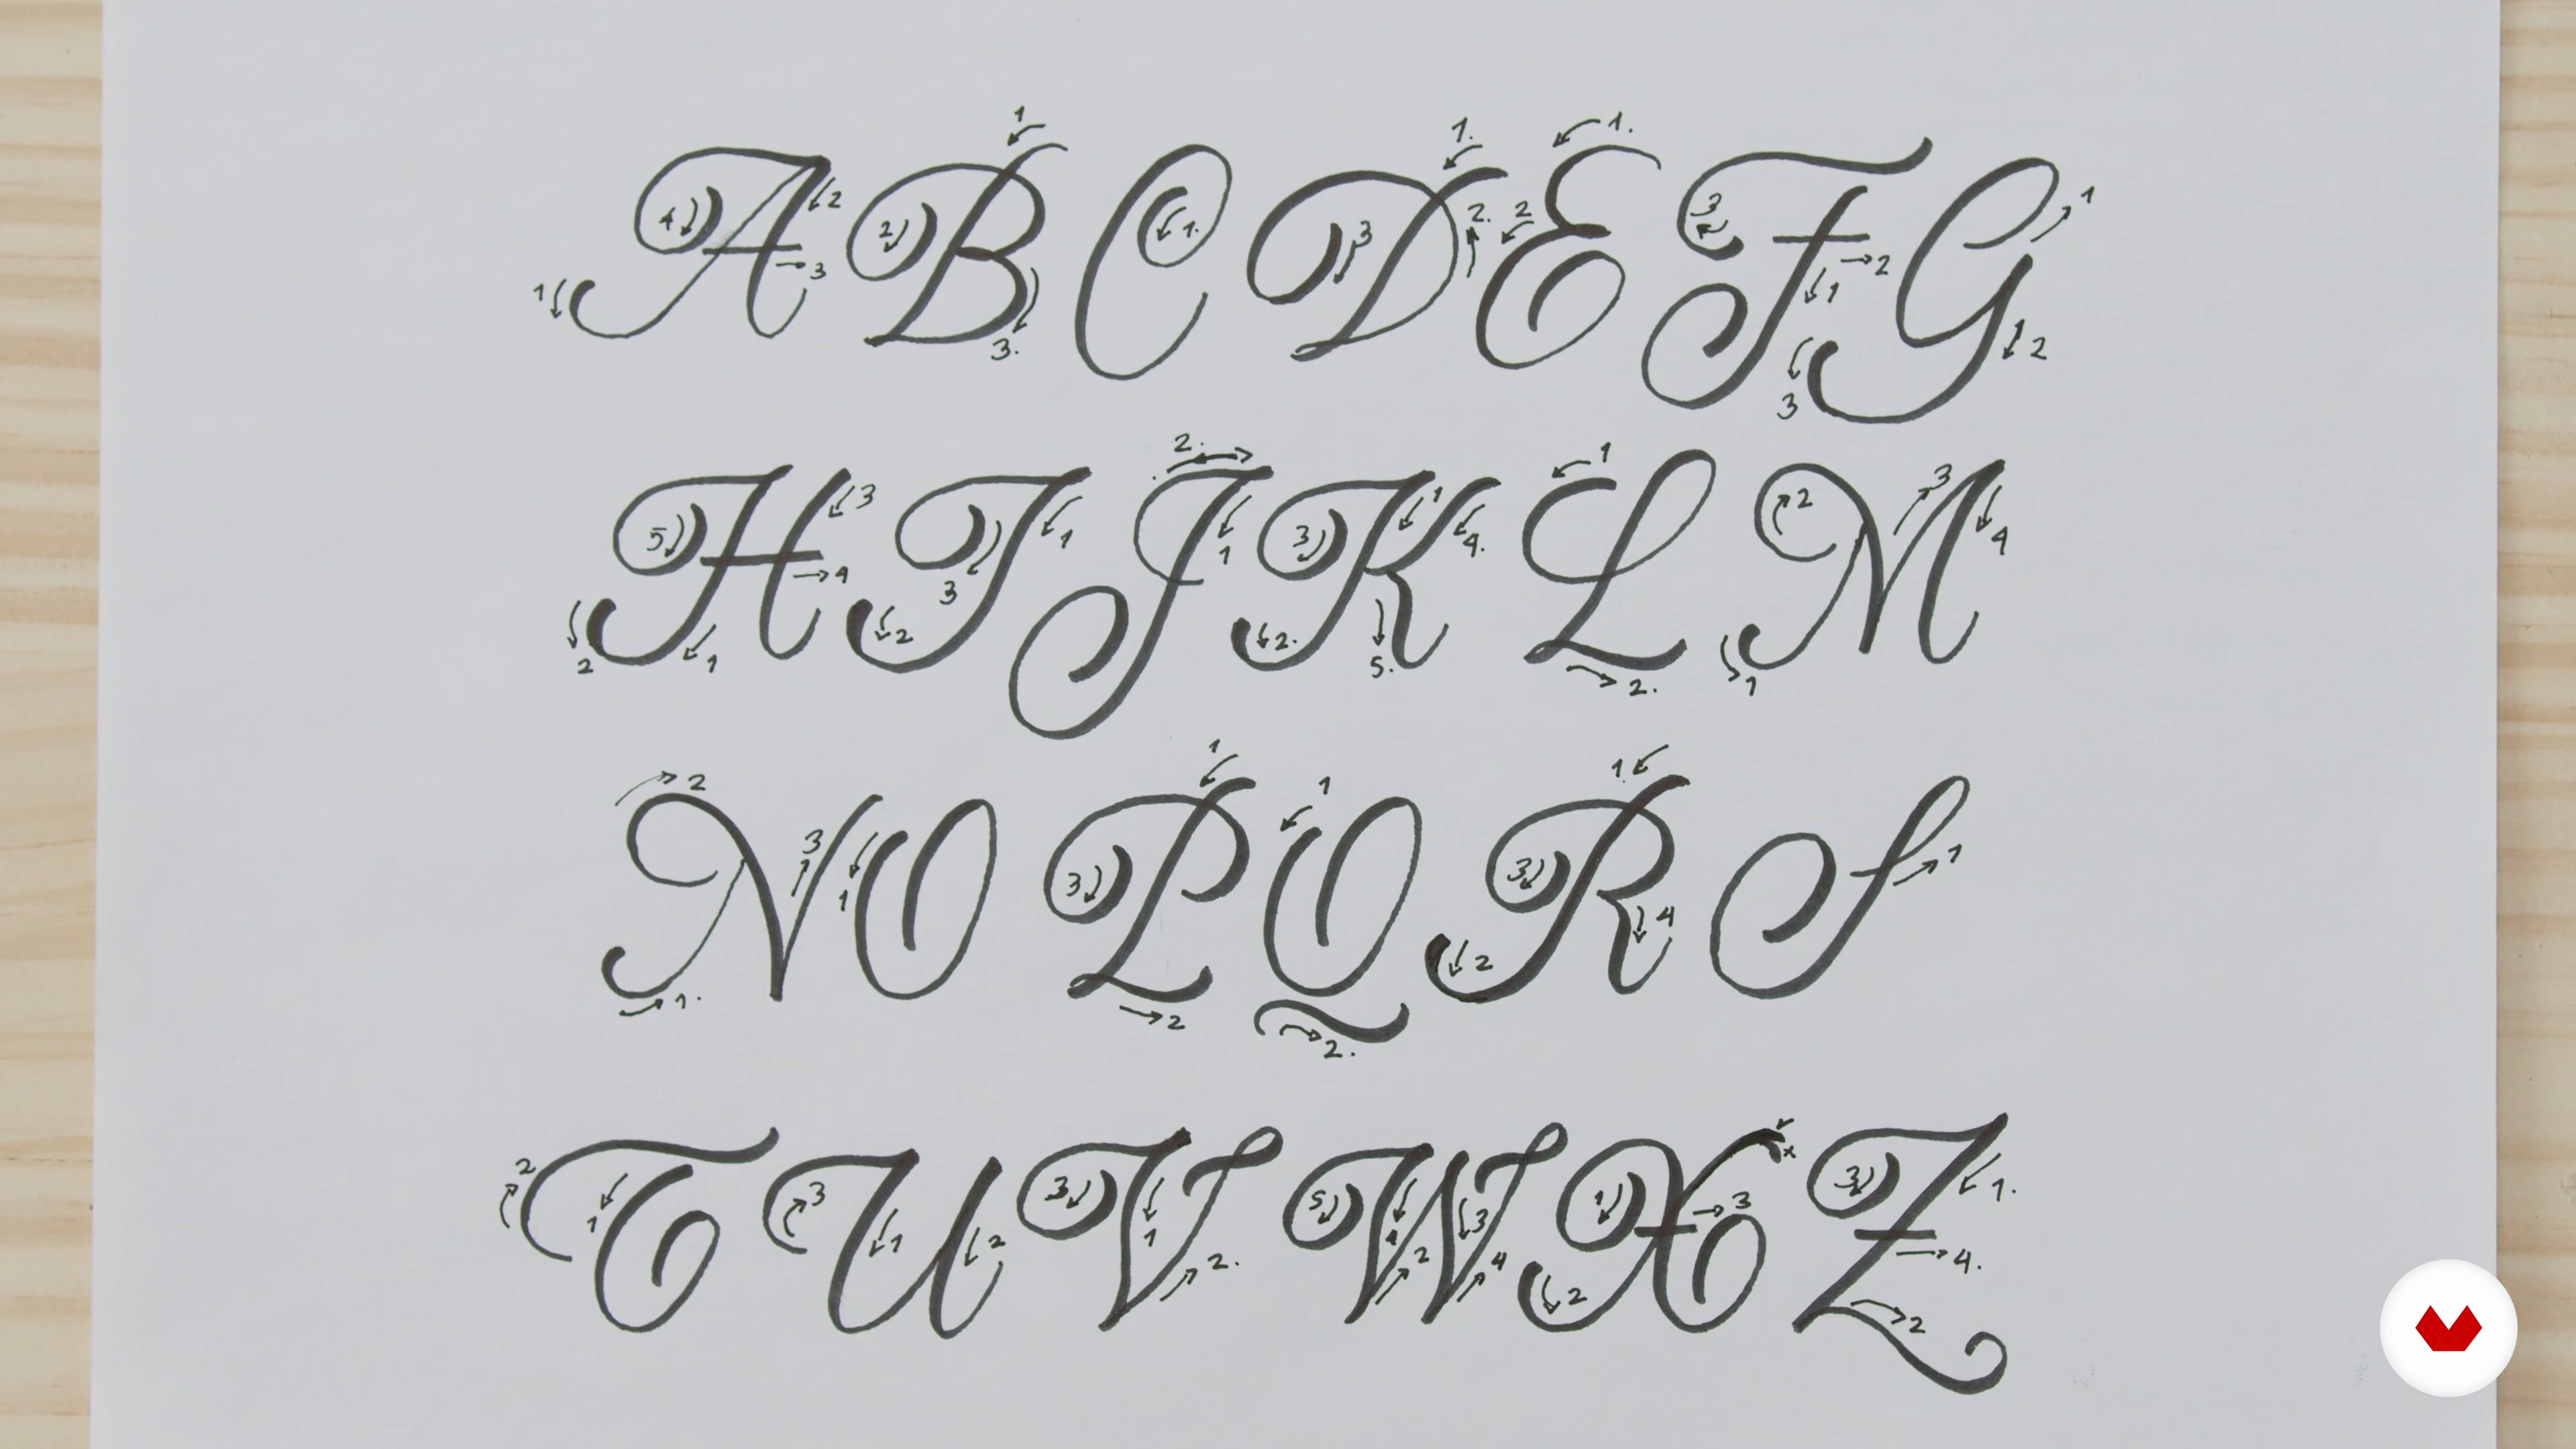 A B C D E F G
H I J K L M
N O P Q R S
T U V W X Z